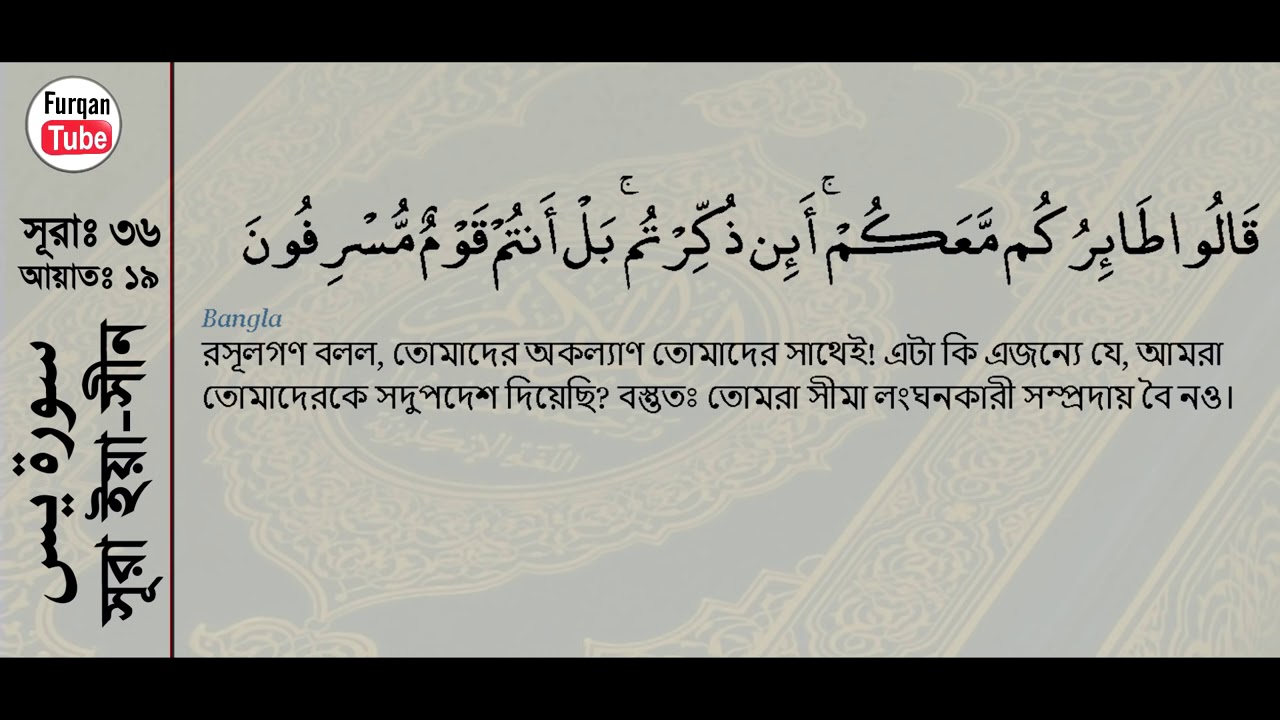 Furqan
Tube
সূরাঃ ৩৬
আয়াতঃ ১৯
سورة يس
সূরা ইয়া-সীন
قَالُوا طَائِرُكُم مَّعَكُمْ ۚ أَئِن ذُكِّرْتُم ۚ بَلْ أَنتُمْ قَوْمٌ مُّسْرِفُونَ
Bangla
রসূলগণ বলল, তোমাদের অকল্যাণ তোমাদের সাথেই! এটা কি এজন্যে যে, আমরা
তোমাদেরকে সদুপদেশ দিয়েছি? বস্তুতঃ তোমরা সীমা লংঘনকারী সম্প্রদায় বৈ নও।